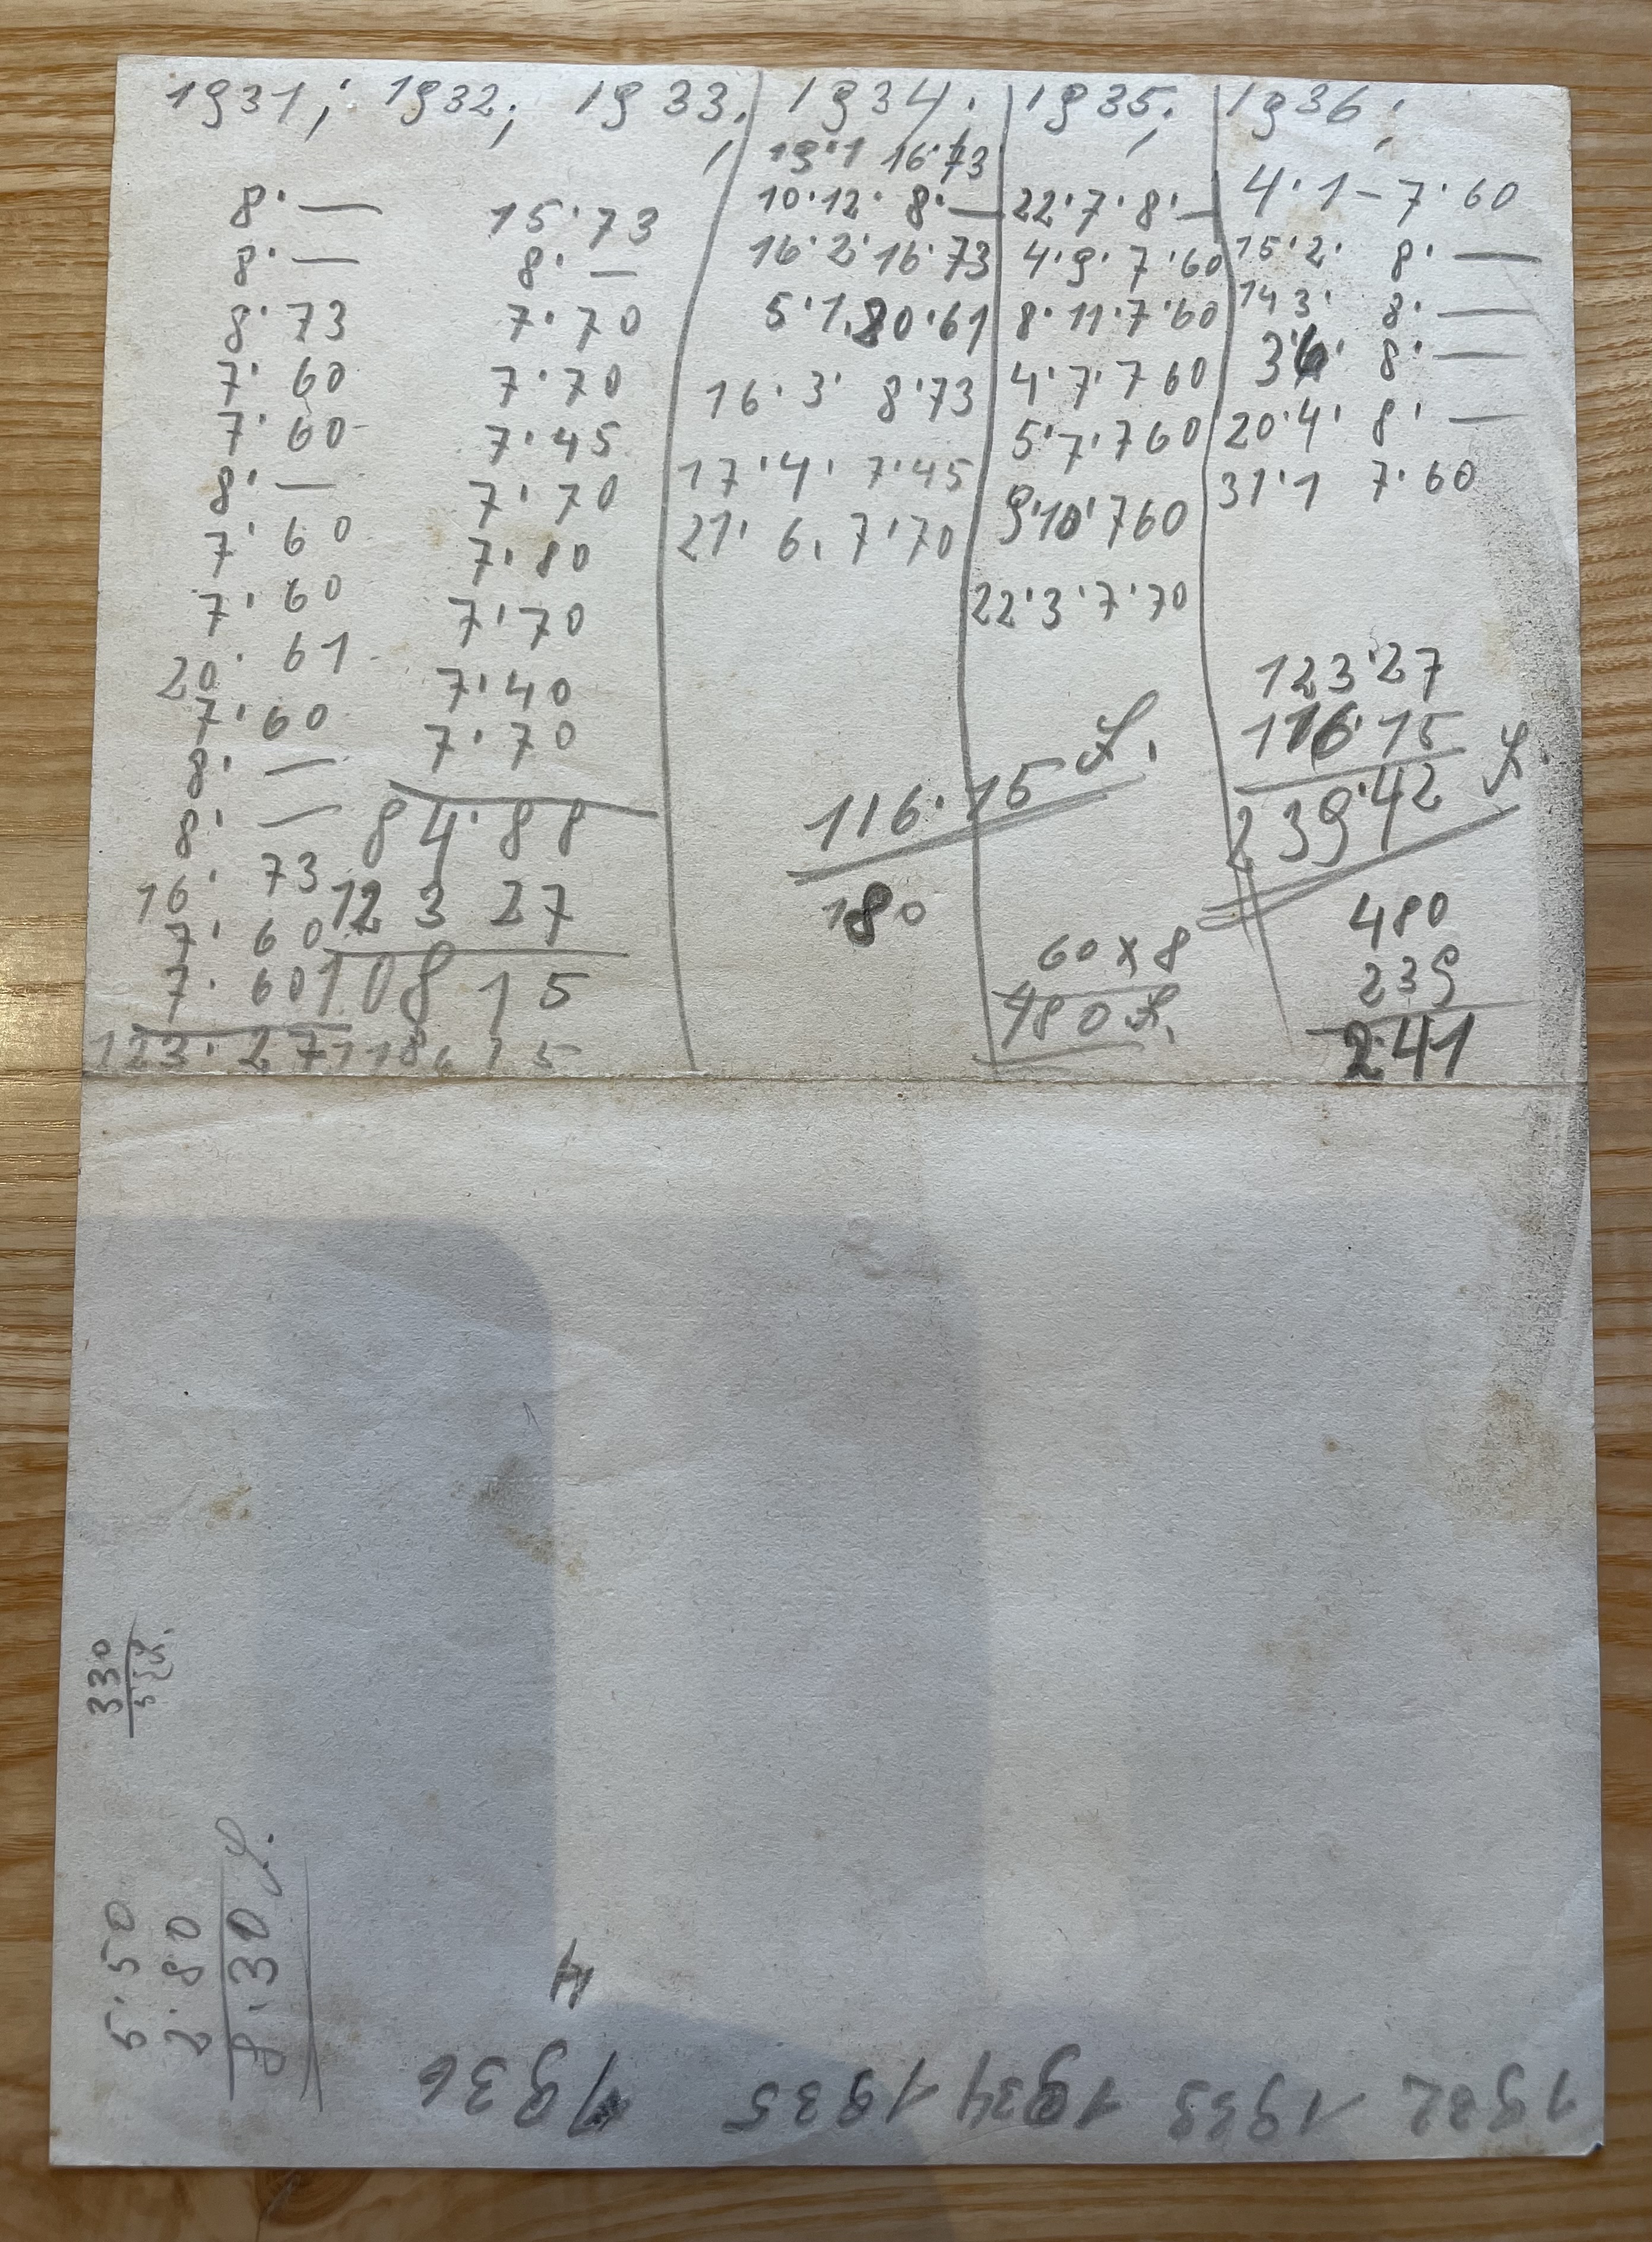 1931; 1932; 1933; 1934; 1935; 1936;
8·—
8·—
8·73
7·60
7·60
8·—
7·60
7·60
20·61
7·60
8·—
8·—
16·73
7·60
7·60
123·27
15·73
8·—
7·70
7·70
7·45
7·70
7·80
7·70
7·40
7·70
84·88
123 27
108 15
19·1 16·73
10·12· 8·—
16·2·16·73
5·1.80·61
16·3· 8·73
17·4· 7·45
21·6. 7·70
116·15 £.
180
22·7·8·—
4·9·7·60
8·11·7·60
4·7·7 60
5·7·7 60
9·10·760
22·3·7·70
60 x 8
480 £.
4·1–7·60
15·2· 8·—
14 3· 8·—
3·6· 8·—
20·4· 8·—
31·1 7·60
123·27
116·15
239·42 £
480
239
241
330
5·50
2·80
8·30 £.
4
1932 1933 1934 1935 1936